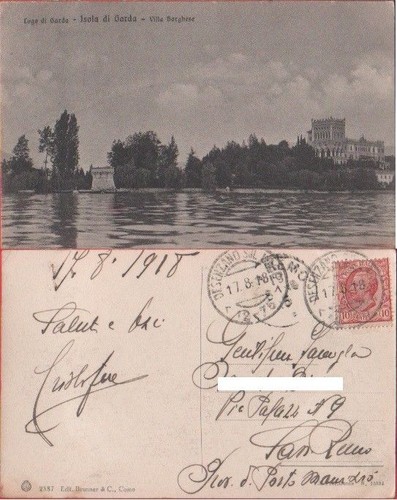 Lago di Garda - Isola di Garda - Villa Borghese
17.8.1918
DESENZANO SUL
17.8.18
DESENZANO
17.8.18
10
Saluti e baci
Gentilissima Famiglia
Via Palazzo N 9
San Remo
Prov. di Porto Maurizio
2187 Edit. Brunner & C., Como